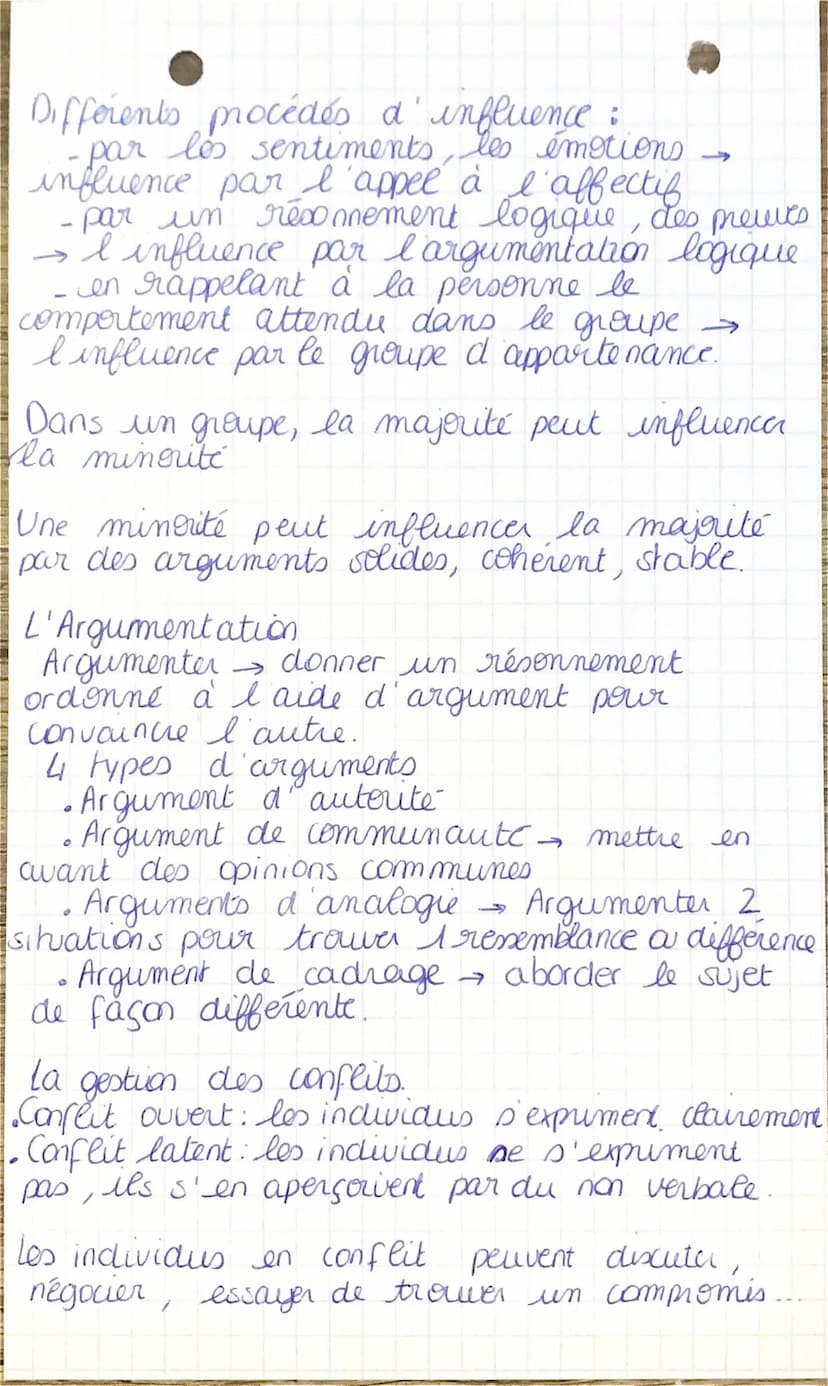 Différents procédés d'influence :
- par les sentiments, les émotions →
influence par l'appel à l'affectif
- par un résonnement logique, des preuves
→ l'influence par l'argumentation logique
- en rappelant à la personne le
comportement attendu dans le groupe →
l'influence par le groupe d'appartenance.
Dans un groupe, la majorité peut influencer
la minorité
Une minorité peut influencer la majorité
par des arguments solides, cohérent, stable.
L'Argumentation
Argumenter → donner un résonnement
ordonné à l'aide d'argument pour
convaincre l'autre.
4 types d'arguments
• Argument d'autorité
• Argument de communauté → mettre en
avant des opinions communes
• Arguments d'analogie → Argumenter 2
situations pour trouver 1 ressemblance ou différence
• Argument de cadrage → aborder le sujet
de façon différente.
La gestion des conflits.
• Conflit ouvert : les individus s'expriment clairement
• Conflit latent : les individus ne s'expriment
pas, ils s'en aperçoivent par du non verbale.
Les individus en conflit peuvent discuter,
négocier, essayer de trouver un compromis...